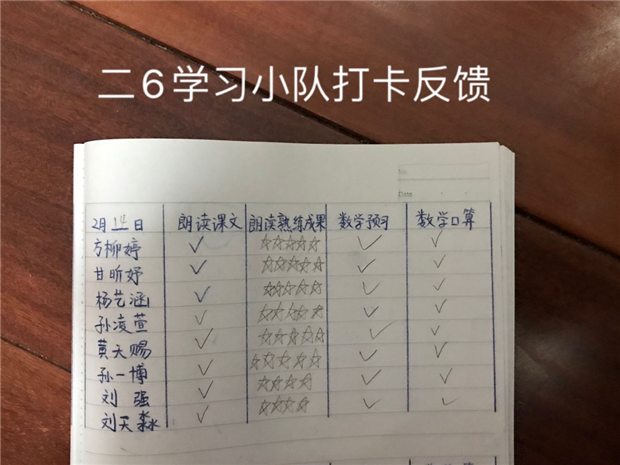 二6学习小队打卡反馈
No.
Date
2月14日 朗读课文 朗读熟练成果 数学预习 数学口算
方柳婷 ✓ ☆☆☆☆☆ ✓ ✓
甘昕妤 ✓ ☆☆☆☆☆ ✓ ✓
杨艺涵 ✓ ☆☆☆☆☆ ✓ ✓
孙凌萱 ✓ ☆☆☆☆☆ ✓ ✓
黄天赐 ✓ ☆☆☆☆☆ ✓ ✓
孙一博 ✓ ☆☆☆☆☆ ✓ ✓
刘强 ✓ ☆☆☆☆ ✓ ✓
刘天淼 ✓ ☆☆☆☆ ✓ ✓